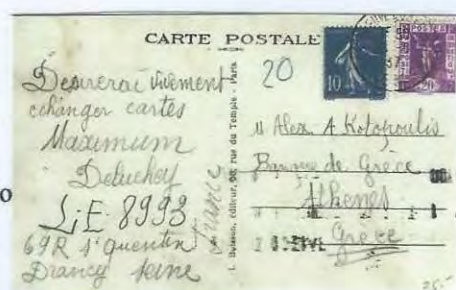 CARTE POSTALE
20
10
POSTES
Desirerai vivement
echanger cartes
Maximum
Deluchey
L.E. 8993
69 R St Quentin
Drancy Seine
France
L. Buisson, éditeur, rue du Temple - Paris
Alex. A. Kotopoulis
Banque de Grèce
Athenes
Grèce
25.-
O